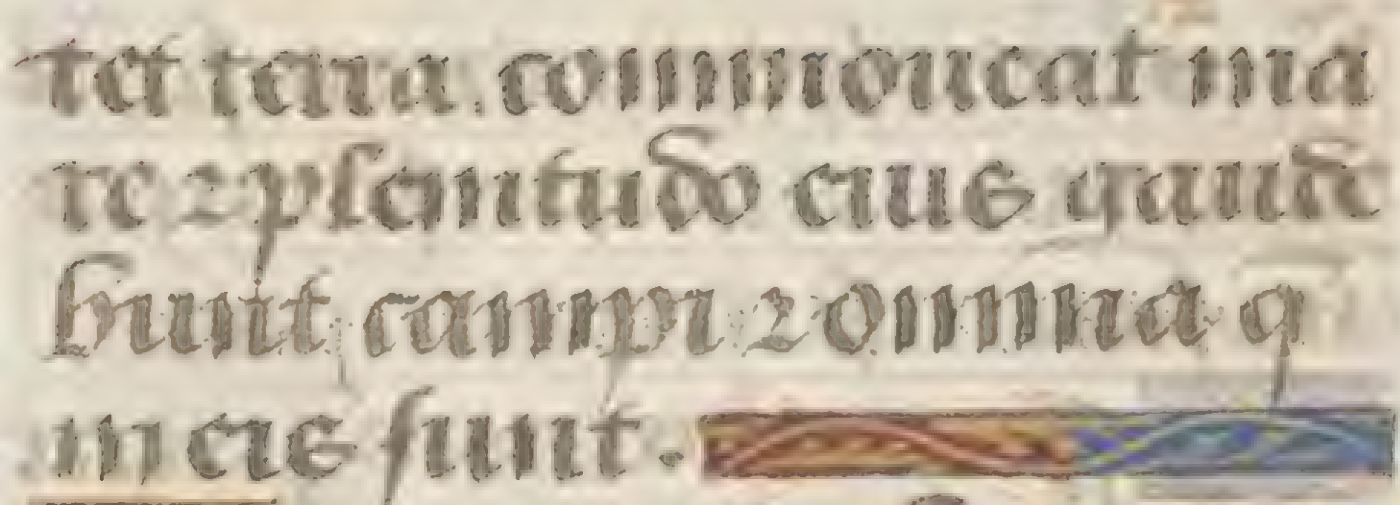 tet terra. commoueat ma
re ⁊ plenitudo eius gaude
bunt campi ⁊ omnia q̄
in eis sunt.